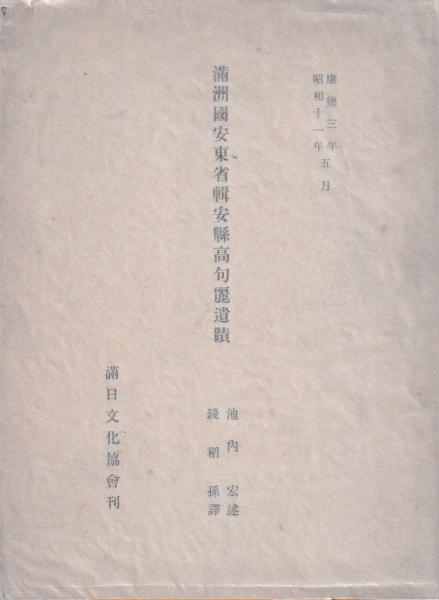 康德三年
昭和十一年五月
滿洲國安東省輯安縣高句麗遺蹟
池內宏述
錢稻孫譯
滿日文化協會刊